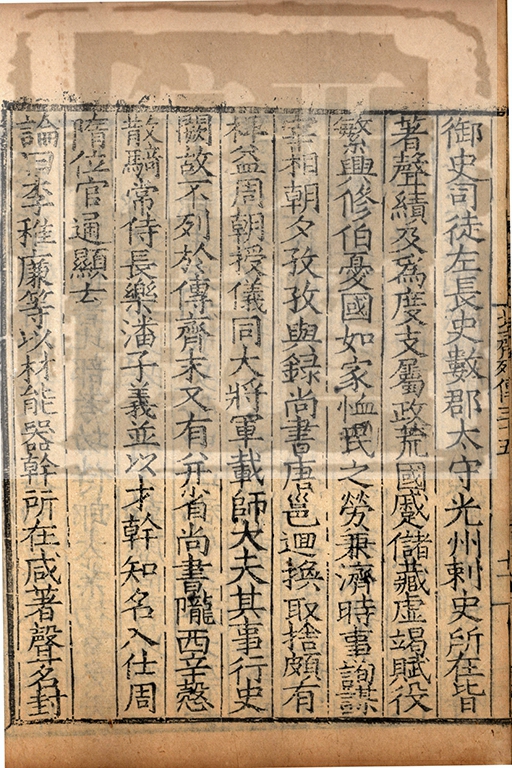 御史司徒左長史數郡太守光州刺史所在皆
著聲績及爲度支屬政荒國蹙儲藏虛竭賦役
繁興修伯憂國如家恤民之勞兼濟時事詢謀
宰相朝夕孜孜與錄尚書唐邕迴換取捨頗有
裨益周朝授儀同大將軍載師大夫其事行史
闕故不列於傳齊末又有并省尚書隴西辛慤
散騎常侍長樂潘子義並以才幹知名入仕周
隋位官通顯云
論曰李稚廉等以材能器幹所在咸著聲名封
北齊列傳三十五